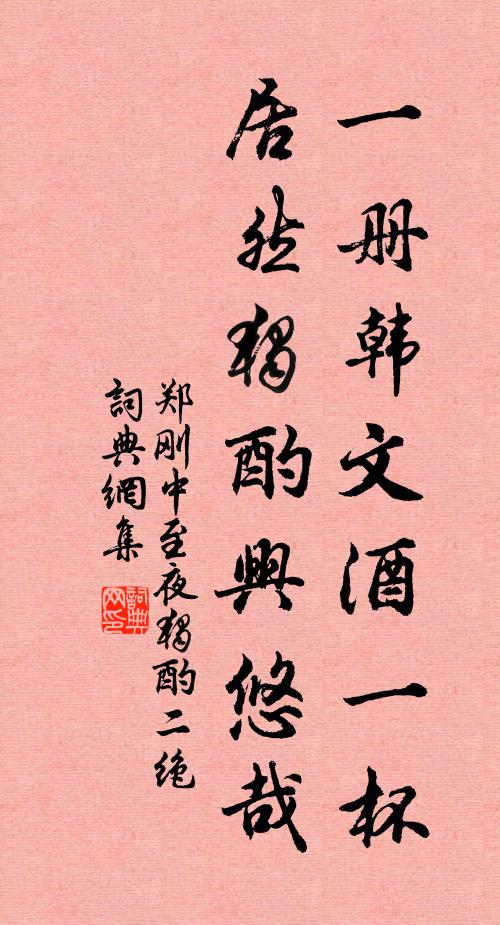 一册韩文酒一杯
居然獨酌興悠哉
郑刚中至夜獨酌二绝
詞典網集
詞典网印